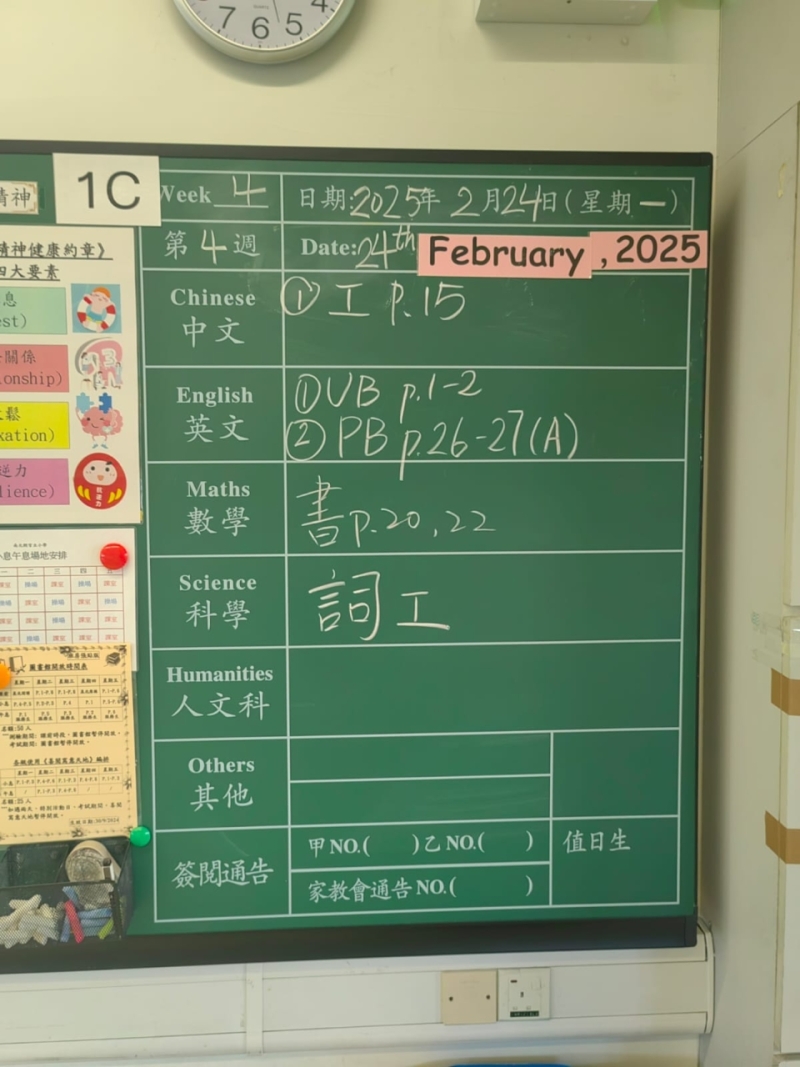 7 6 5 4
精神
1C
Week 4
日期:2025年 2月24日(星期一)
第4週
Date:24th February , 2025
精神健康約章》
四大要素
息
est)
關係
ionship)
鬆
xation)
逆力
lience)
小息午息場地安排
圖書館開放時間表
Chinese
中文
① 工 p.15
English
英文
① VB p.1-2
② PB p.26-27(A)
Maths
數學
書p.20,22
Science
科學
詞工
Humanities
人文科
Others
其他
簽閱通告
甲NO.( )乙NO.( )
家教會通告NO.( )
值日生